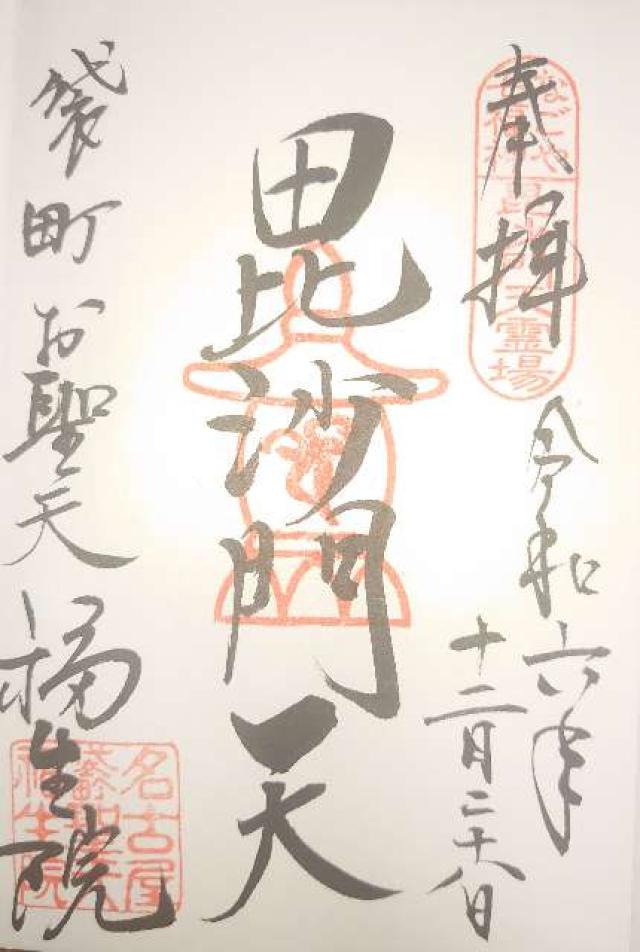 奉拝
令和六年
十二月二十八日
毘沙門天
袋町お聖天
福生院
霊場
名古屋